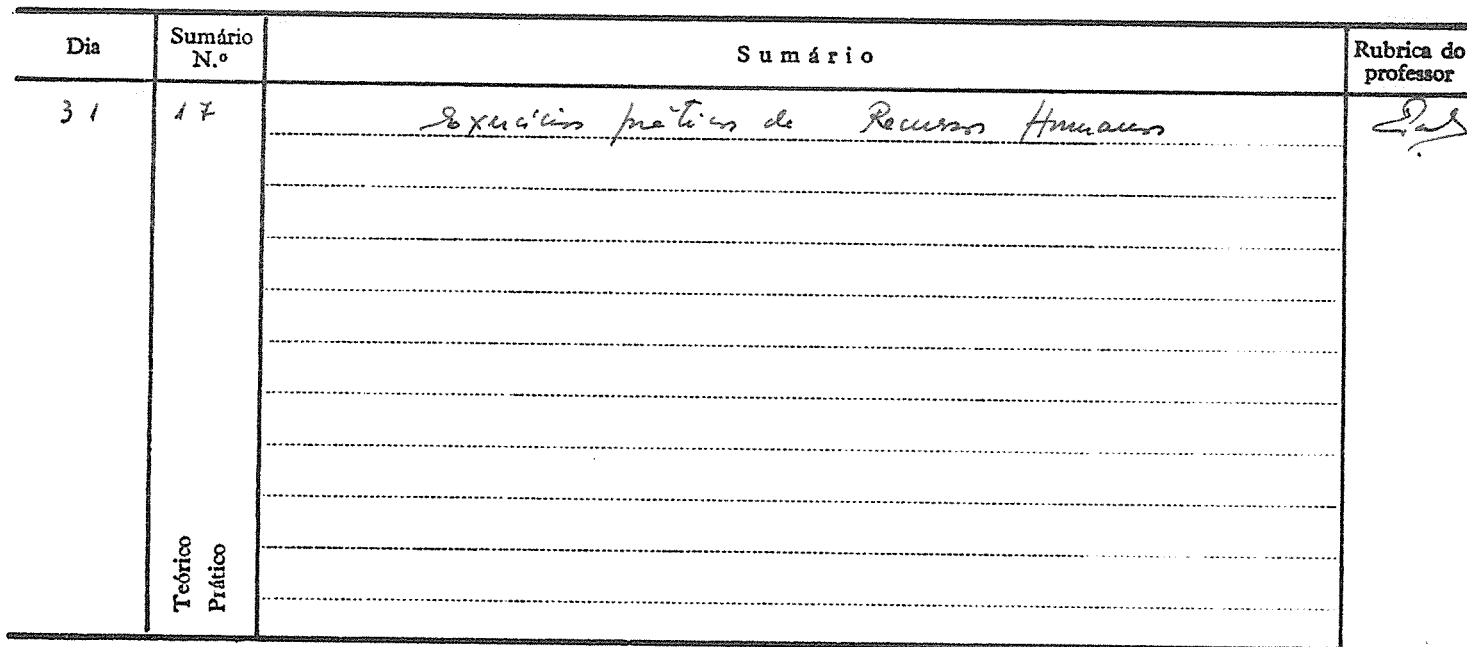 Dia Sumário N.º Sumário Rubrica do professor
31 17 Exercícios práticos de Recursos Humanos
Teórico
Prático